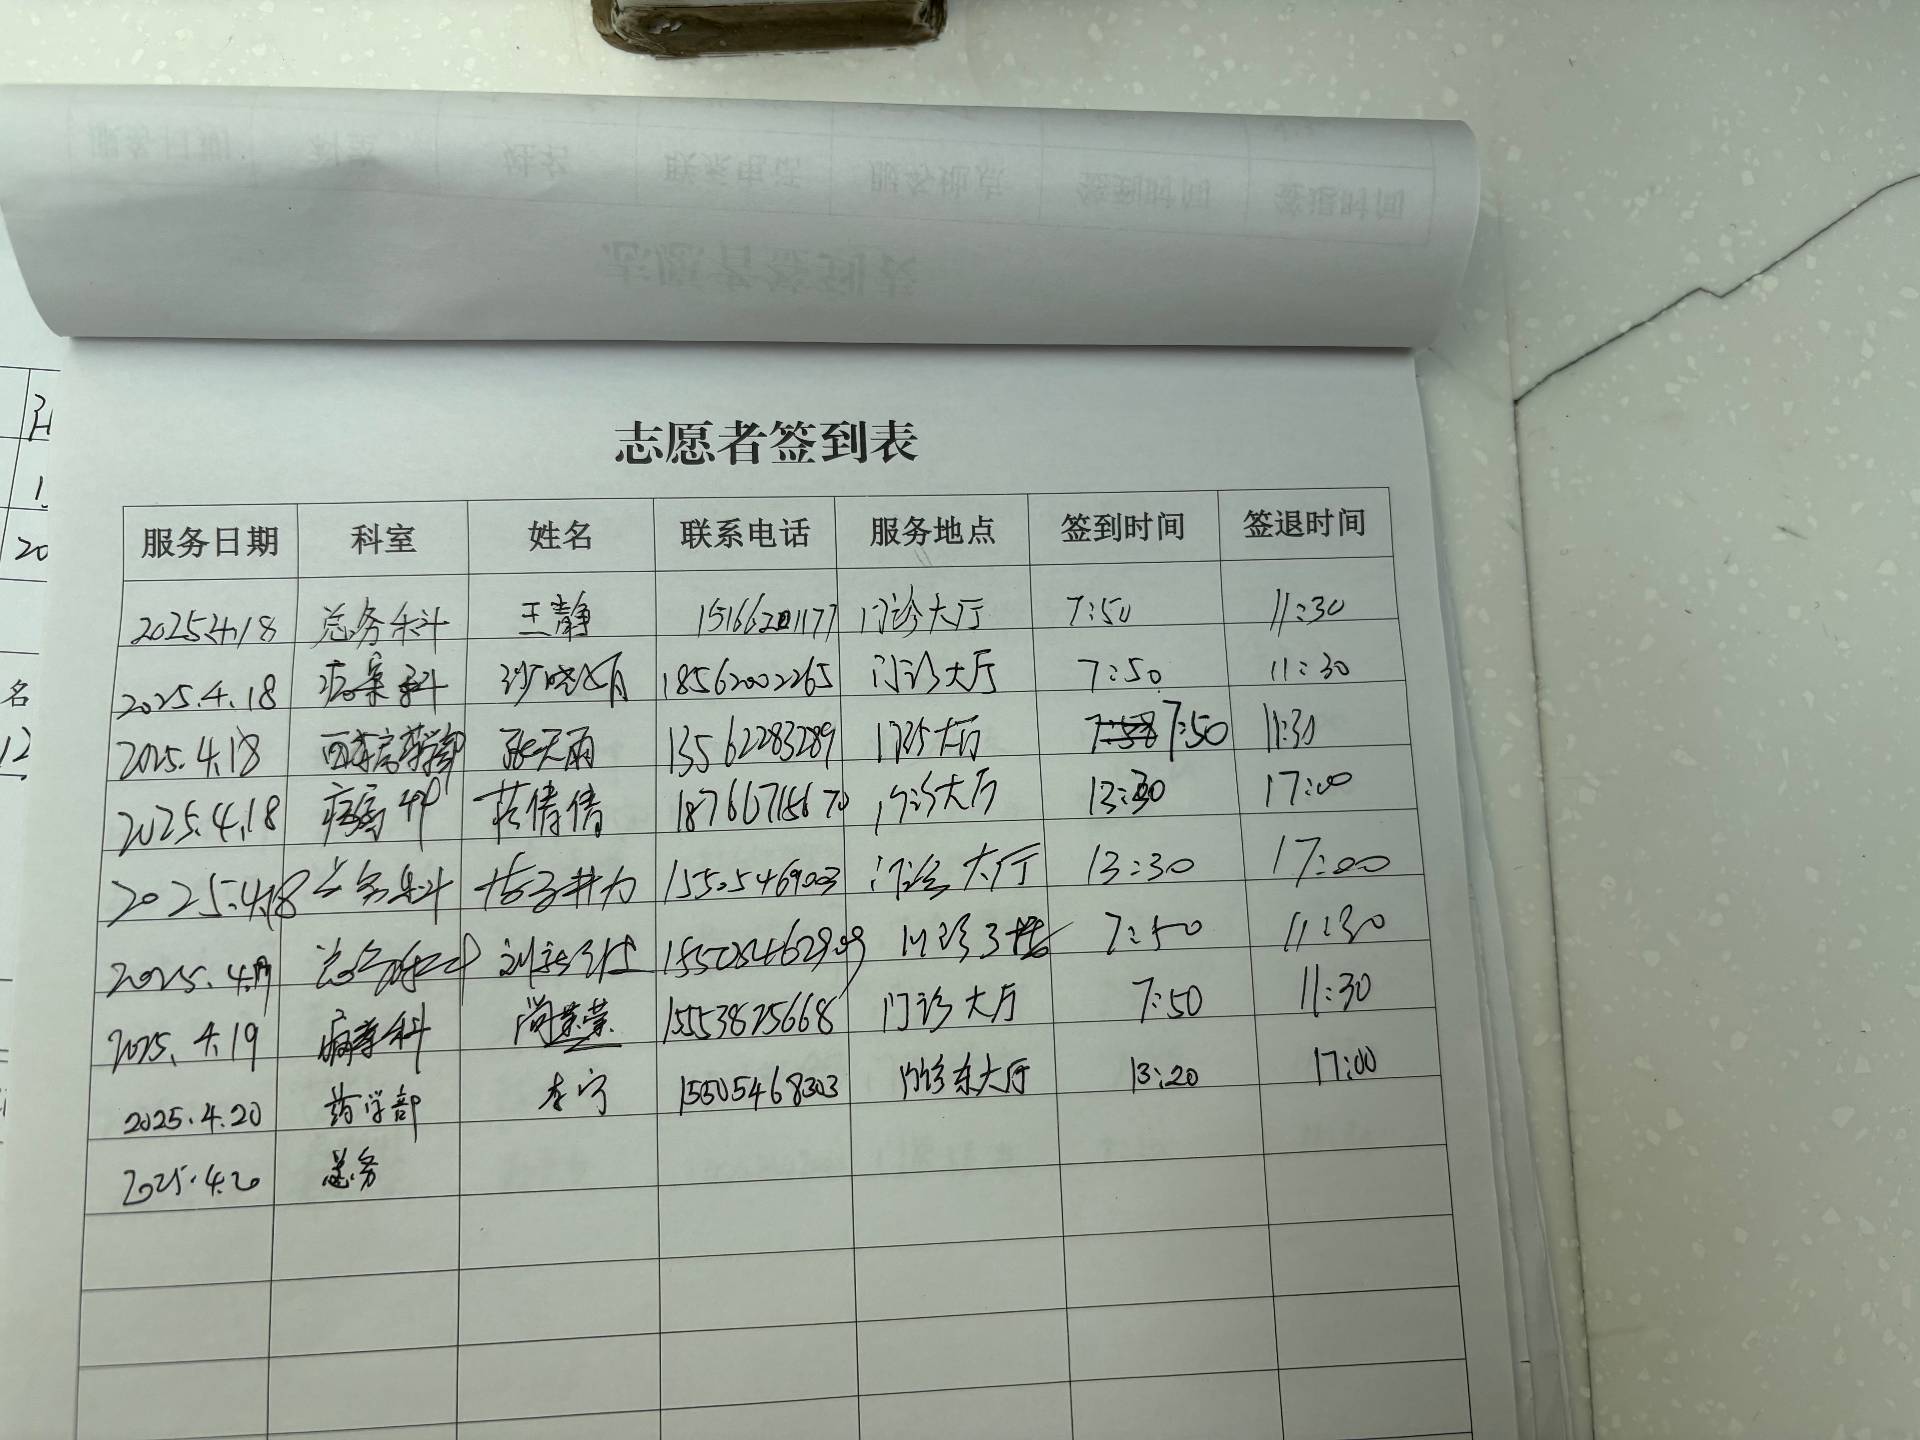 志愿者签到表
服务日期 科室 姓名 联系电话 服务地点 签到时间 签退时间
2025.4.18 总务科 王静 门诊大厅 7:50 11:30
2025.4.18 病案科 18562002265 门诊大厅 7:50 11:30
2025.4.18 张天雨 13562283289 门诊大厅 7:50 11:30
2025.4.18 倩倩 18766715670 门诊大厅 13:30 17:00
2025.4.18 总务科 15505469003 门诊大厅 13:30 17:00
2025.4.19 总务科 门诊3楼 7:50 11:30
2025.4.19 15553825668 门诊大厅 7:50 11:30
2025.4.20 药学部 李宁 15505468303 门诊东大厅 13:20 17:00
2025.4.20 总务